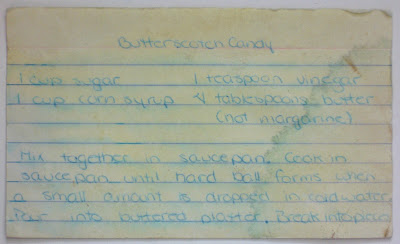 Butterscotch Candy
1 cup sugar 1 teaspoon vinegar
1 cup corn syrup 4 tablespoons butter
(not margarine)
Mix together in saucepan. Cook in
saucepan until hard ball forms when
a small amount is dropped in cold water.
Pour into buttered platter. Break into pieces